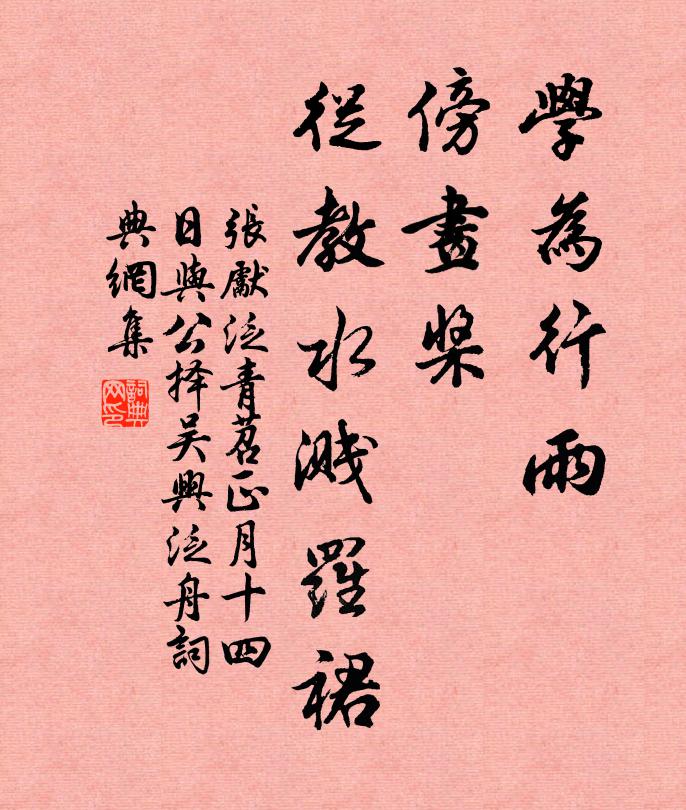 學為行雨
傍畫槳
從教水濺羅裙
張獻泛青苕正月十四
日與公择吴興泛舟詞
典網集
詞典网印